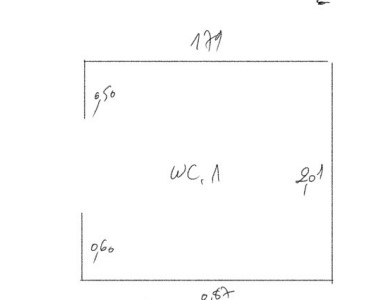 179
0,50
WC, 1
2,01
0,60
0,87